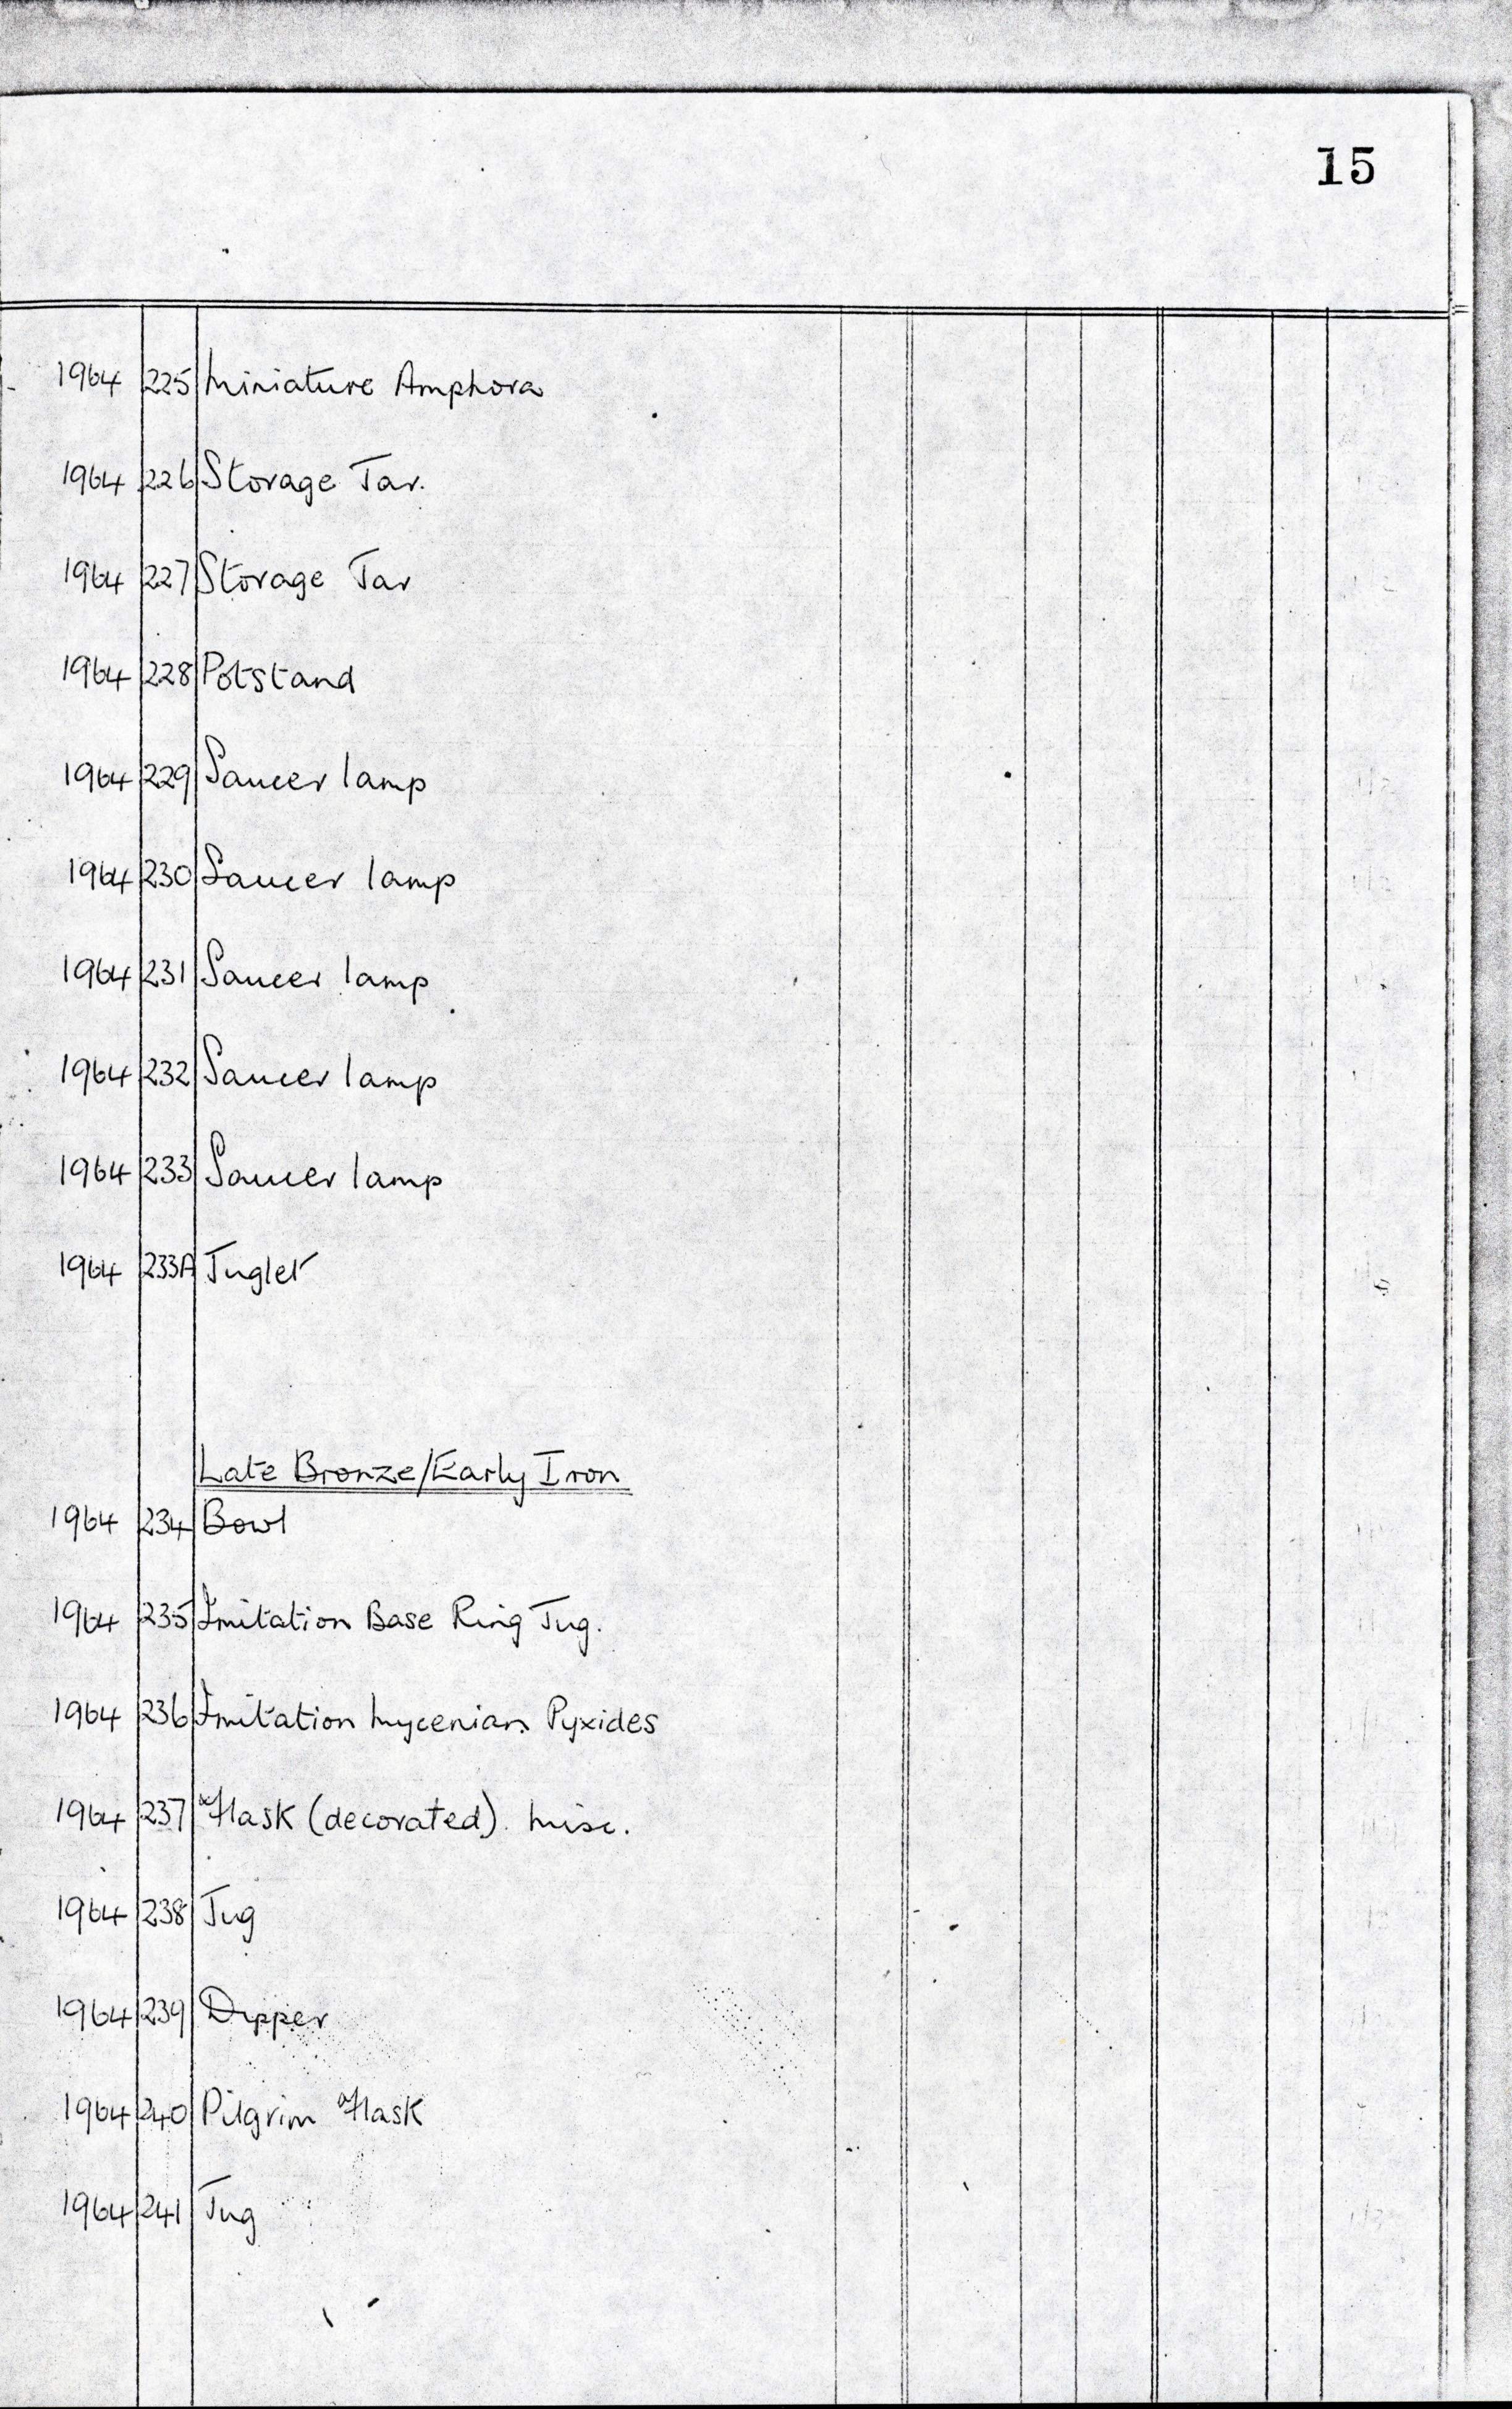 15
1964 225 Miniature Amphora
1964 226 Storage Jar.
1964 227 Storage Jar
1964 228 Potstand
1964 229 Saucer lamp
1964 230 Saucer lamp
1964 231 Saucer lamp
1964 232 Saucer lamp
1964 233 Saucer lamp
1964 233A Juglet
Late Bronze/Early Iron
1964 234 Bowl
1964 235 Imitation Base Ring Jug.
1964 236 Imitation Mycenian Pyxides
1964 237 Flask (decorated). Misc.
1964 238 Jug
1964 239 Dipper
1964 240 Pilgrim Flask
1964 241 Jug